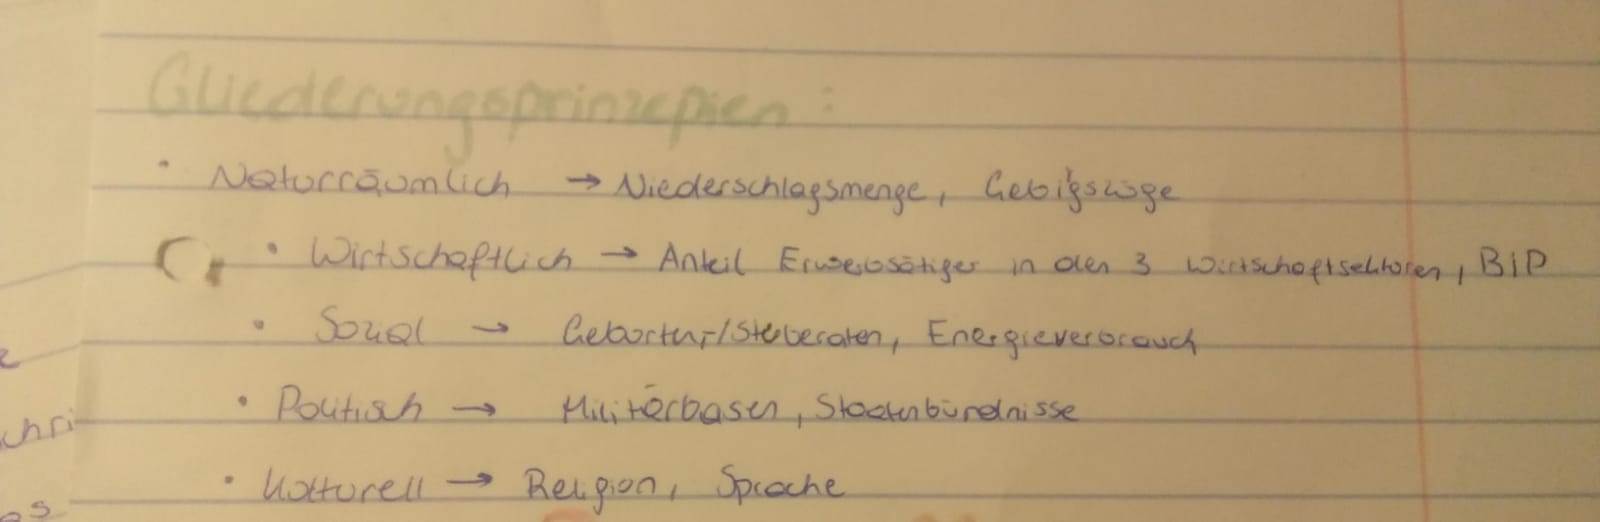 Gliederungsprinzepien:
• Naturräumlich → Niederschlagsmenge, Gebigszüge
• Wirtschaftlich → Anteil Erwerbsätiger in den 3 Wirtschaftsektoren, BIP
• Sozial → Geburten-/Sterberaten, Energieverbrauch
• Politisch → Militärbasen, Staatenbündnisse
• Kulturell → Religion, Sprache